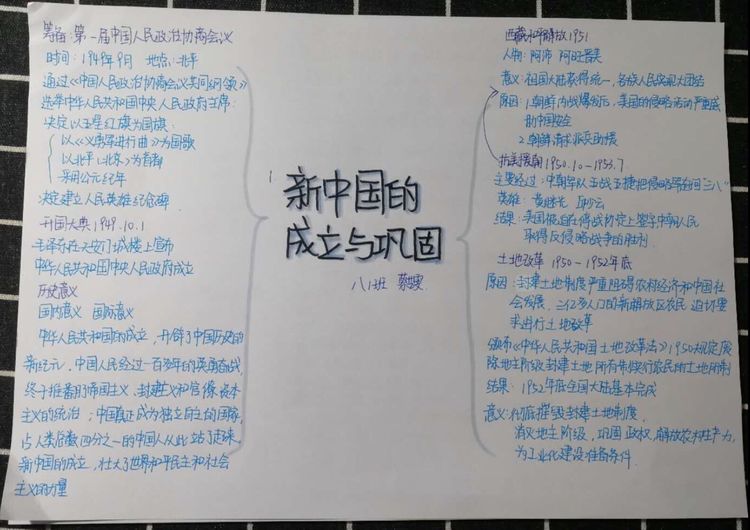 筹备:第一届中国人民政治协商会议
时间:1949年9月 地点:北平
通过《中国人民政治协商会议共同纲领》
选举中华人民共和国中央人民政府主席:
决定以五星红旗为国旗
以《义勇军进行曲》为国歌
以北平(北京)为首都
采用公元纪年
决定建立人民英雄纪念碑
开国大典 1949.10.1
毛泽东在天安门城楼上宣布
中华人民共和国中央人民政府成立
历史意义
国内意义 国际意义
中华人民共和国的成立,开辟了中国历史的
新纪元,中国人民经过一百多年的英勇奋战,
终于推翻了帝国主义、封建主义和官僚资本
主义的统治;中国真正成为独立自主的国家,
占人类总数四分之一的中国人从此站了起来。
新中国的成立,壮大了世界和平民主和社会
主义的力量
新中国的
成立与巩固
八1班
西藏和平解放 1951
人物:阿沛 阿旺晋美
意义:祖国大陆获得统一,各族人民实现大团结
原因:1.朝鲜内战爆发后,美国的侵略活动严重威
胁中国安全
2.朝鲜请求派兵助援
抗美援朝 1950.10-1953.7
主要经过:中朝军队五战五捷把侵略军赶回"三八"
英雄:黄继光 邱少云
结果:美国被迫在停战协定上签字中朝人民
取得反侵略战争的胜利
土地改革 1950-1952年底
原因:封建土地制度严重阻碍农村经济和中国社
会发展,三亿多人口的新解放区农民迫切要
求进行土地改革
颁布《中华人民共和国土地改革法》1950规定废
除地主阶级封建土地所有制实行农民的土地所制
结果:1952年底全国大陆基本完成
意义:彻底摧毁封建土地制度
消灭地主阶级,巩固政权,解放农村生产力,
为工业化建设准备条件